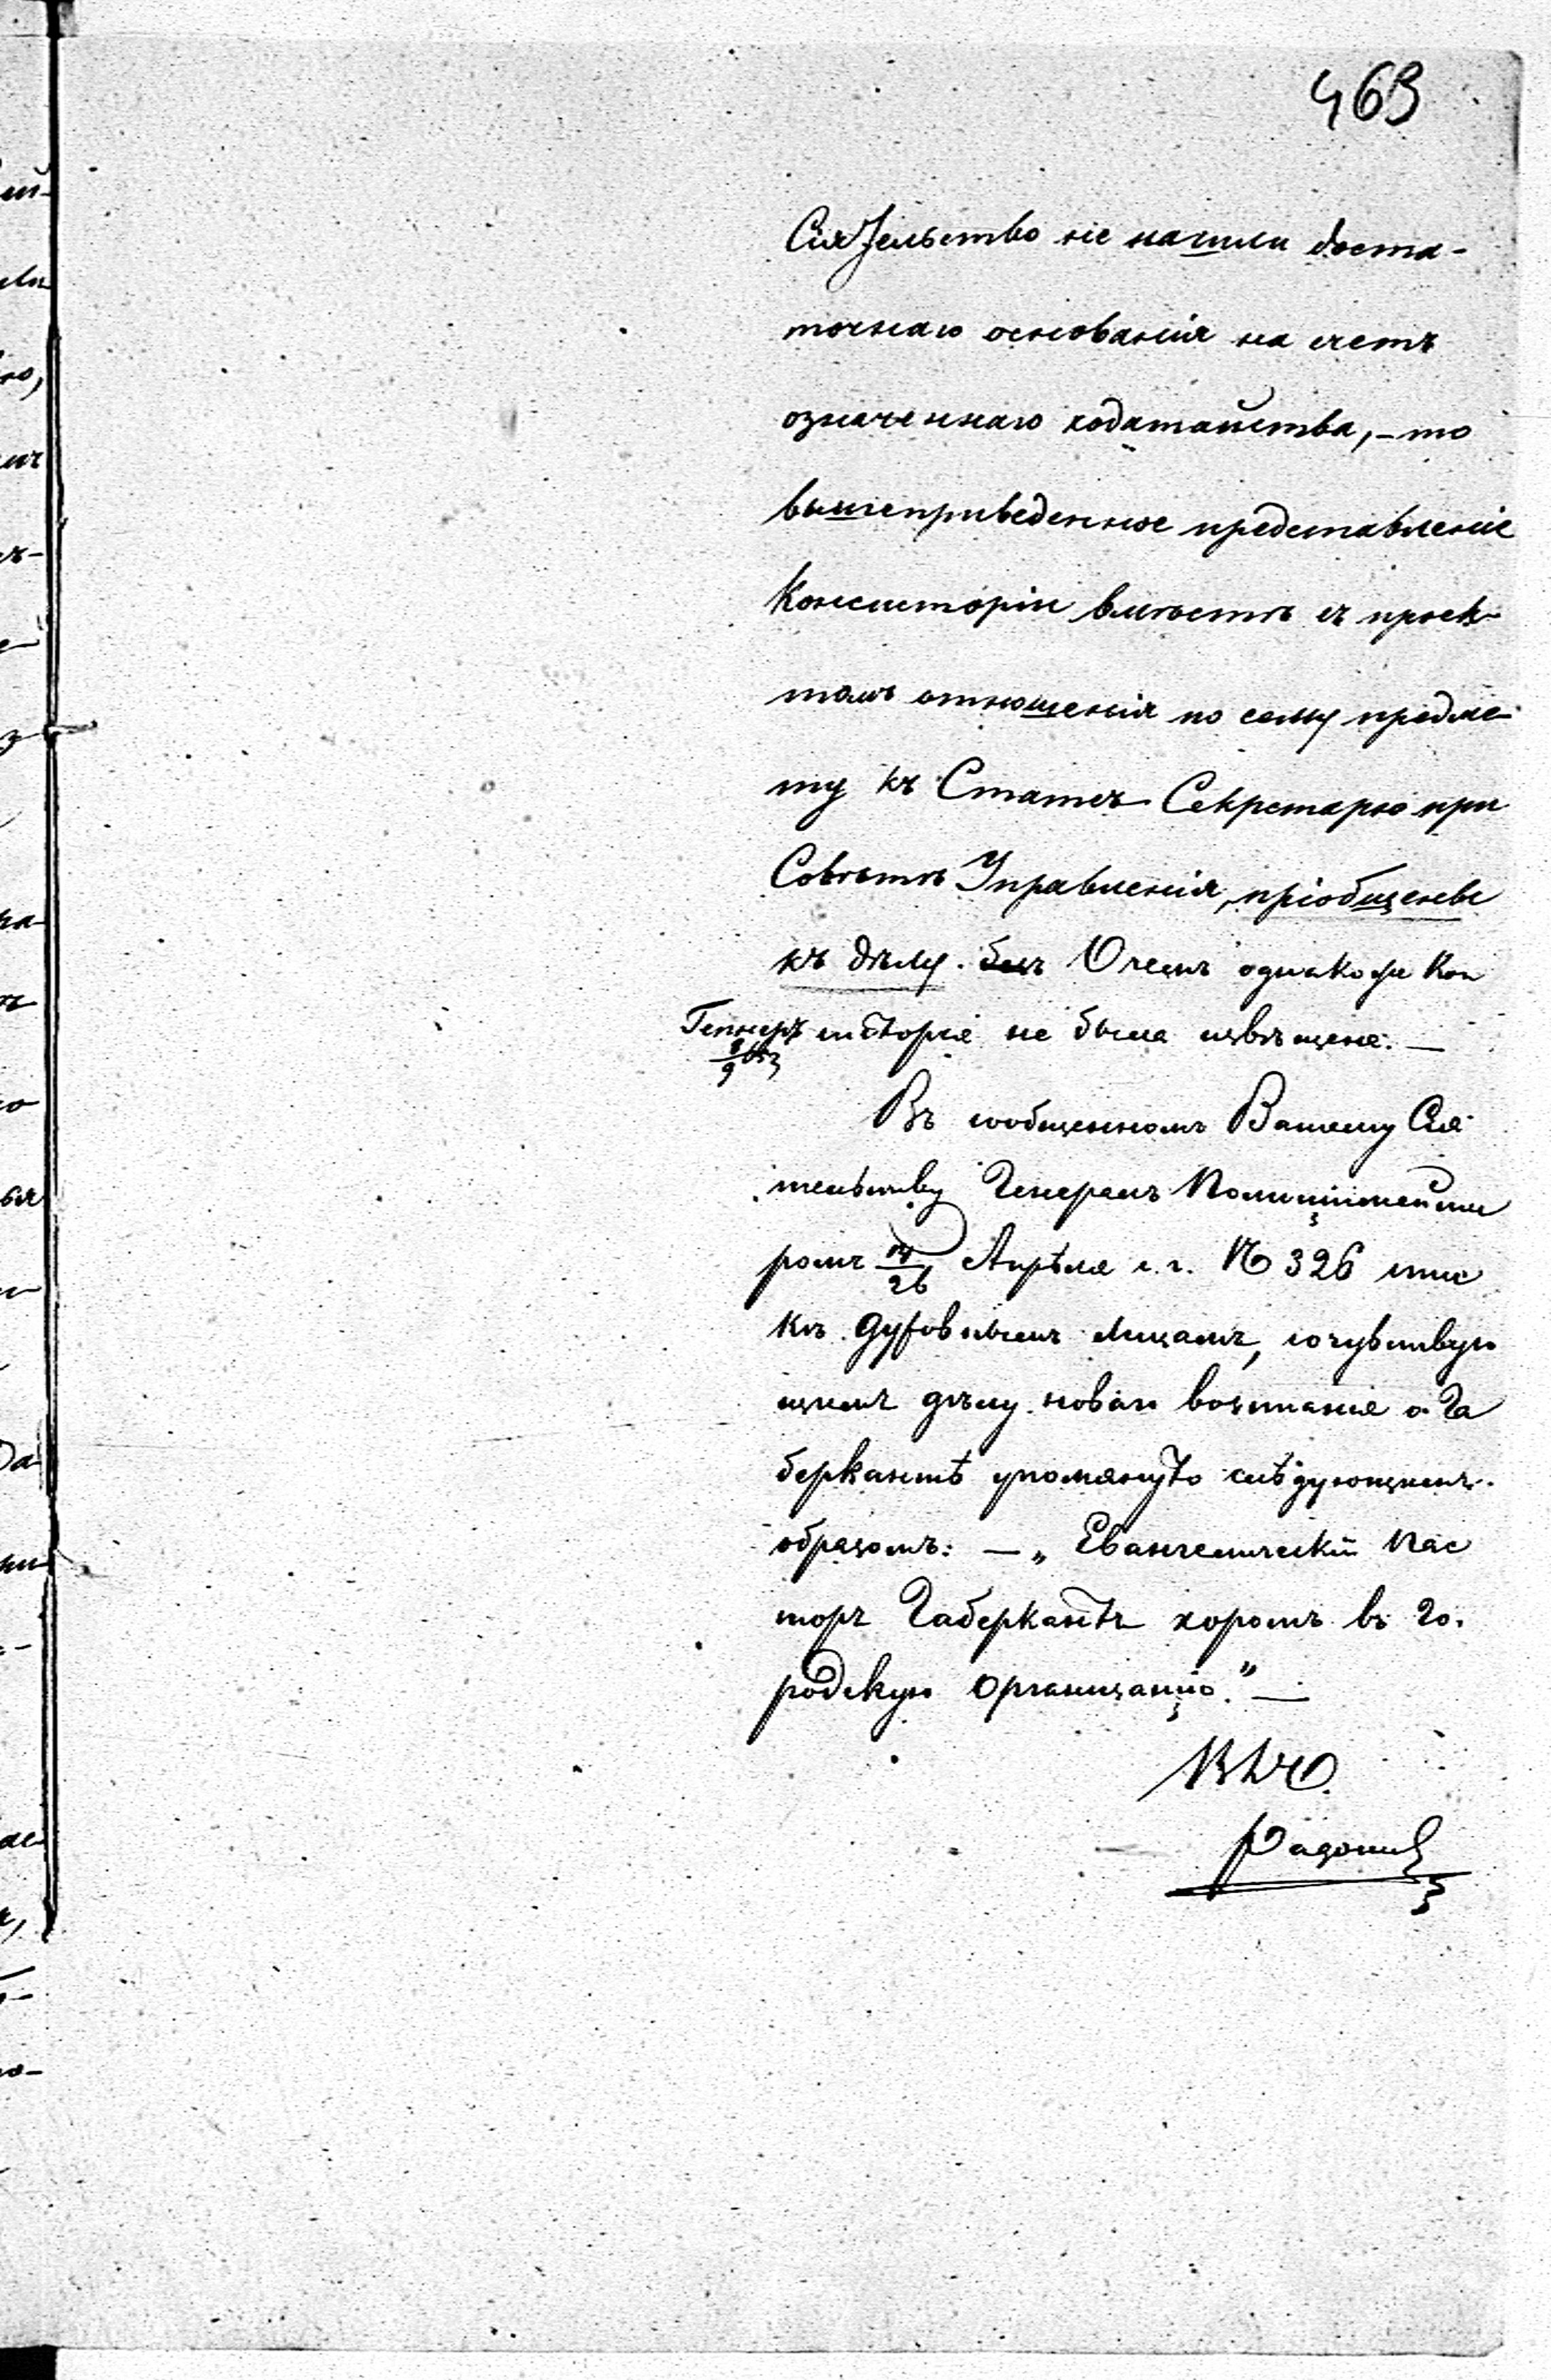 463
Сіятельство не нашли доста-
точнаго основанія на счетъ
означеннаго ходатайства, - то
вышеприведенное представленіе
Консисторіи вмѣстѣ съ проек-
томъ отношенія по сему предме-
ту къ Статсъ Секретарю при
Совѣтѣ Управленія, пріобщены
къ дѣлу. О чемъ однакоже Кон
систорія не была извѣщена. —
Въ сообщенномъ Вашему Сія
тельству Генералъ Полиціймейсте
ромъ 14/26 Апрѣля с. г. № 326 спис
кѣ духовнымъ лицамъ, сочувствую
щимъ дѣлу новаго возстанія о Га
беркантѣ упомянуто слѣдующимъ
образомъ: — „Евангелическій Пас
торъ Габеркантъ хоромъ въ го.
родскую организацію." —